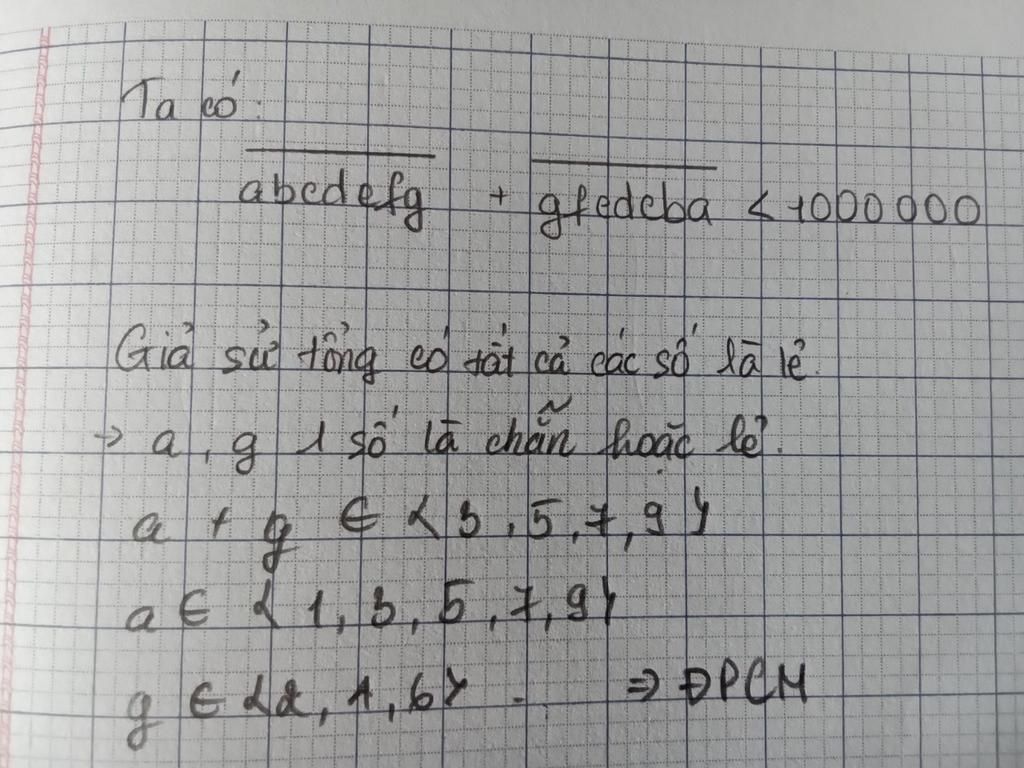 Ta có:
abcdefg + gfedcba < 1000 000
Giả sử tổng có tất cả các số là lẻ.
→ a, g 1 số là chẵn hoặc lẻ.
a + g ∈ {3, 5, 7, 9}
a ∈ {1, 3, 5, 7, 9}
g ∈ {2, 1, 6} . ⇒ ĐPCM